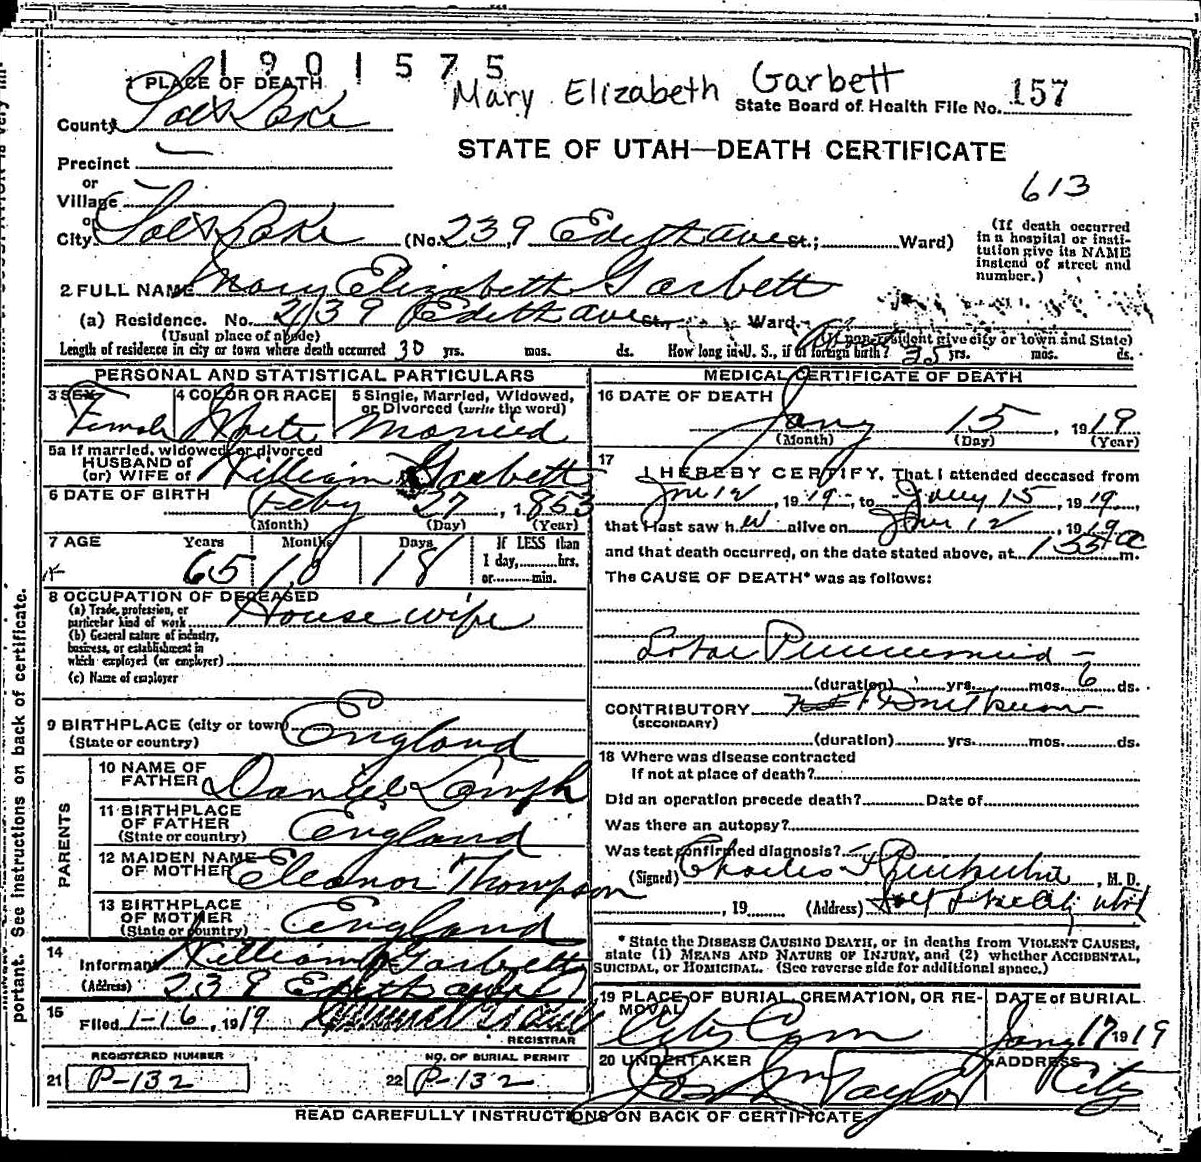 1901575
Mary Elizabeth Garbett
1 PLACE OF DEATH
State Board of Health File No. 157
County Salt Lake
STATE OF UTAH—DEATH CERTIFICATE
Precinct
or
Village
613
or
City Salt Lake (No. 239 Edith ave St.; Ward)
(If death occurred in a hospital or institution give its NAME instead of street and number.)
2 FULL NAME Mary Elizabeth Garbett
(a) Residence. No. 239 Edith ave St., Ward.
(Usual place of abode) (If non-resident give city or town and State)
Length of residence in city or town where death occurred 30 yrs. mos. ds. How long in U. S., if of foreign birth? 35 yrs. mos. ds.
PERSONAL AND STATISTICAL PARTICULARS
3 SEX Female
4 COLOR OR RACE White
5 Single, Married, Widowed, or Divorced (write the word) Married
5a If married, widowed or divorced
HUSBAND of
(or) WIFE of William Garbett
6 DATE OF BIRTH Feby 27, 1853
(Month) (Day) (Year)
7 AGE Years 65 Months 10 Days 18
If LESS than
1 day, hrs.
or min.
8 OCCUPATION OF DECEASED
(a) Trade, profession, or
particular kind of work House wife
(b) General nature of industry,
business, or establishment in
which employed (or employer)
(c) Name of employer
9 BIRTHPLACE (city or town)
(State or country) England
PARENTS
10 NAME OF
FATHER Daniel
11 BIRTHPLACE
OF FATHER
(State or country) England
12 MAIDEN NAME
OF MOTHER Eleanor Thompson
13 BIRTHPLACE
OF MOTHER
(State or country) England
14
Informant William Garbett
(Address) 239 Edith ave
15
Filed 1-16, 1919
REGISTRAR
REGISTERED NUMBER
21 P-132
NO. OF BURIAL PERMIT
22 P-132
MEDICAL CERTIFICATE OF DEATH
16 DATE OF DEATH
Jany 15, 1919
(Month) (Day) (Year)
17
I HEREBY CERTIFY, That I attended deceased from
Jan 12, 1919, to Jany 15, 1919,
that I last saw her alive on Jan 12, 1919
and that death occurred, on the date stated above, at 155 a m.
The CAUSE OF DEATH* was as follows:
Lobar Pneumonia -
(duration) yrs. mos. 6 ds.
CONTRIBUTORY
(SECONDARY)
(duration) yrs. mos. ds.
18 Where was disease contracted
if not at place of death?
Did an operation precede death? Date of
Was there an autopsy?
Was test confirmed diagnosis?
(Signed) Charles, M. D.
, 19 (Address) Salt Lake City Utah
* State the DISEASE CAUSING DEATH, or in deaths from VIOLENT CAUSES,
state (1) MEANS AND NATURE OF INJURY, and (2) whether ACCIDENTAL,
SUICIDAL, or HOMICIDAL. (See reverse side for additional space.)
19 PLACE OF BURIAL, CREMATION, OR REMOVAL City Cem
DATE of BURIAL
Jany 17 1919
20 UNDERTAKER Jos Wm Taylor
ADDRESS City
READ CAREFULLY INSTRUCTIONS ON BACK OF CERTIFICATE
portant. See instructions on back of certificate.